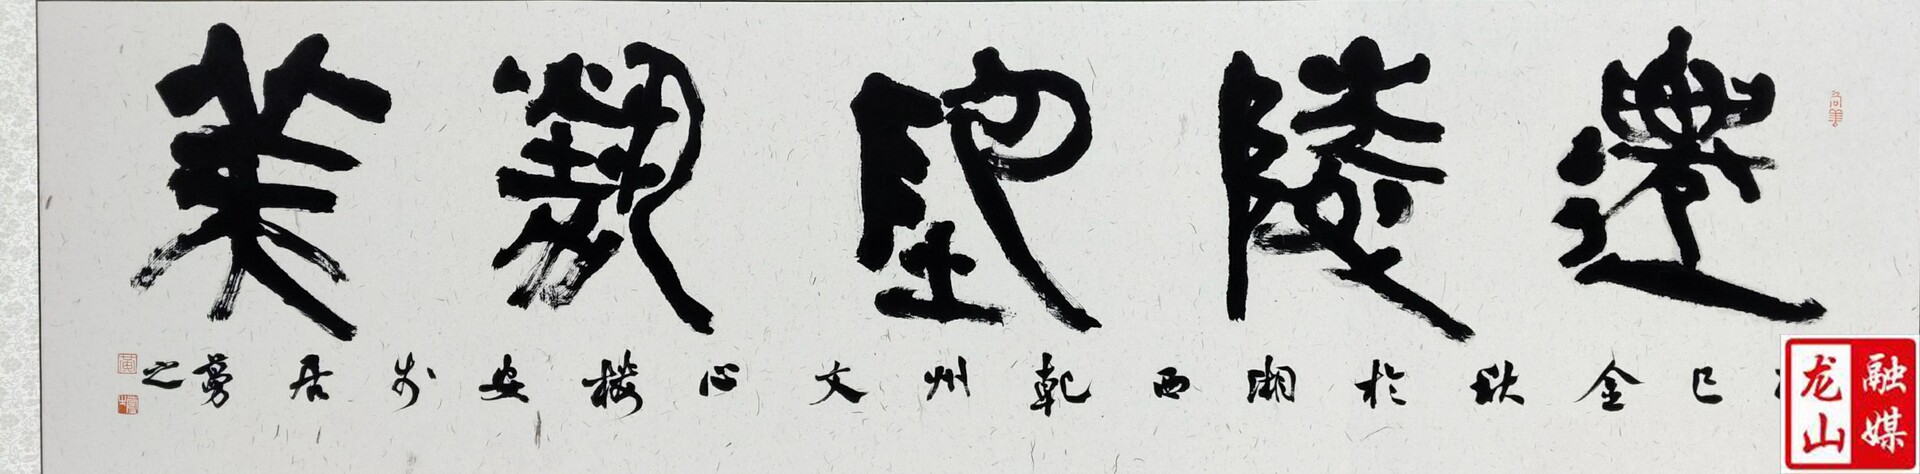 遷陵地勢美
巳金秋於湘西乾州文心樓安步居勇之
龙山
融媒